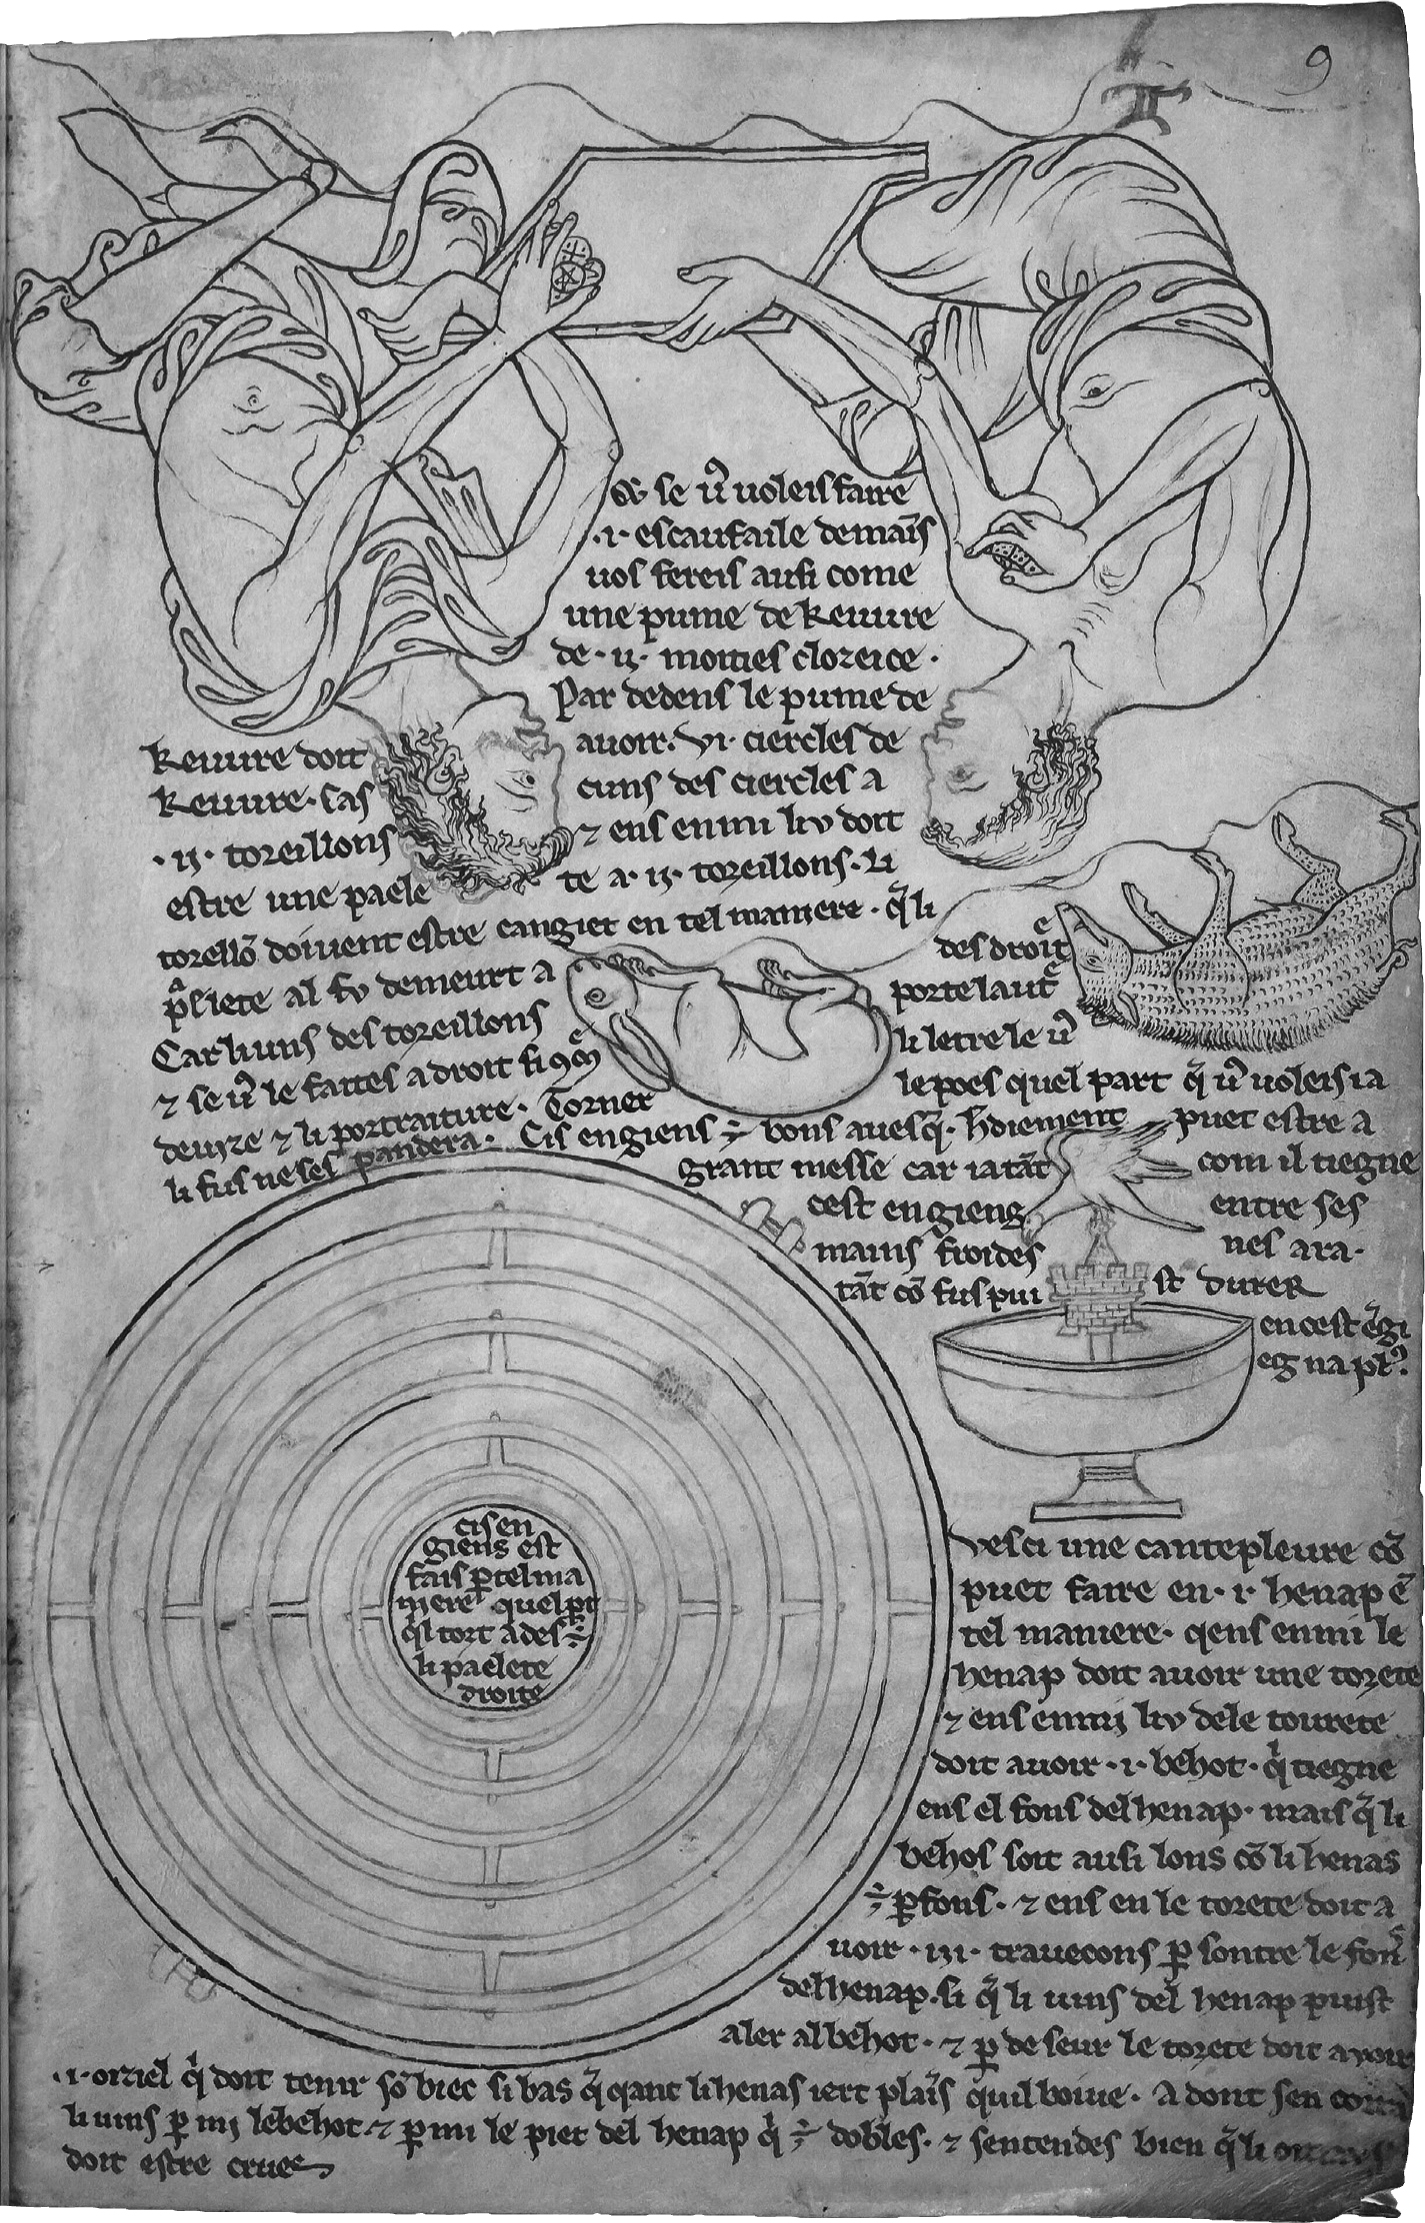 9
Se vͦ uoleis faire
.i. escaufaile de maīs
uos fereis ausi come
une pume de keuure
de .ij. moities clozeice.
Par dedens le pume de
keuure doit auoir .vi. ciercles de
keuure. cas cuns des ciercles a
.ij. toreillons ⁊ ens enmi liv doit
estre une paele te a .ij. toreillons. li
torellō doiuent estre cangiet en tel maniere. q̄ li
pͣliete al fv demeurt a des droitͤ
Car li uns des toreillons porte lautͤ
⁊ se vͦ le faites a droit si 9mͤ li letre le vͦ
deuize ⁊ li portraiture. Torner le poes quel part q̄ vͦ uoleis ia
li fus ne ses pandera. Cis engiens ÷ bons a uesq̄. hͬdiement puet estre a
grant messe car ia tāt com il tiegne
cest engieng entre ses
mains froides nes ara.
tāt cō fus puist durer
en cest ēgi
eg na plꝰ.
cis en
giens est
fais ꝑ tel ma
niereͤ quel ꝑt
qͥl tort adeſ ÷
li paelete
droite
Vesci une cantepleure cō
puet faire en .i. henap ē
tel maniere. qens enmi le
henap doit auoir une torete
⁊ ens enmi liv de le tourete
doit auoir .i. behot. qͥ tiegne
ens el fons del henap. mais q̄ li
behos soit ausi lons cō li henas
÷ ꝑfons. ⁊ ens en le torete doit a
uoir .iij. trauecons ꝑ sontre le fonͨ
del henap. si q̄ li uins del henap puist
aler al behot. ⁊ ꝑ de seur le torete doit auoir
.i. oiziel qͥ doit tenir sō biec si bas q̄ qant li henas iert plaīs quil boiue. Adont sen corra
li uins ꝑ mi le behot ⁊ ꝑ mi le piet del henap qͥ ÷ dobles. ⁊ sentendes bien q̄ li oiziaus
doit estre crueͨ